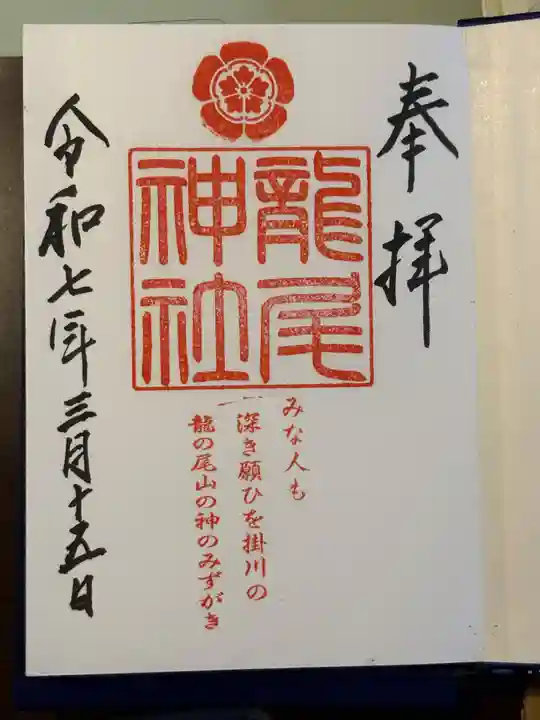 奉拝
龍尾
神社
みな人も
深き願ひを掛川の
龍の尾山の神のみずがき
令和七年三月十五日